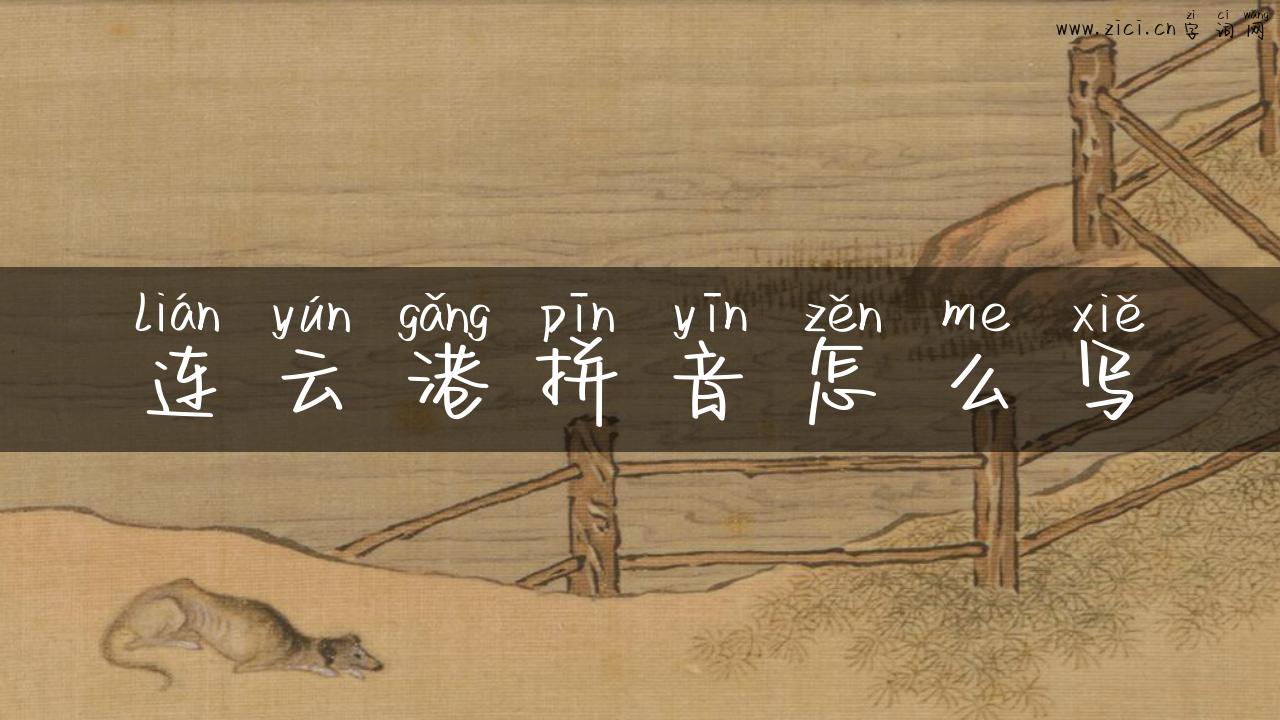 zi ci wang
www.zici.cn 字词网
lián yún gǎng pīn yīn zěn me xiě
连云港拼音怎么写